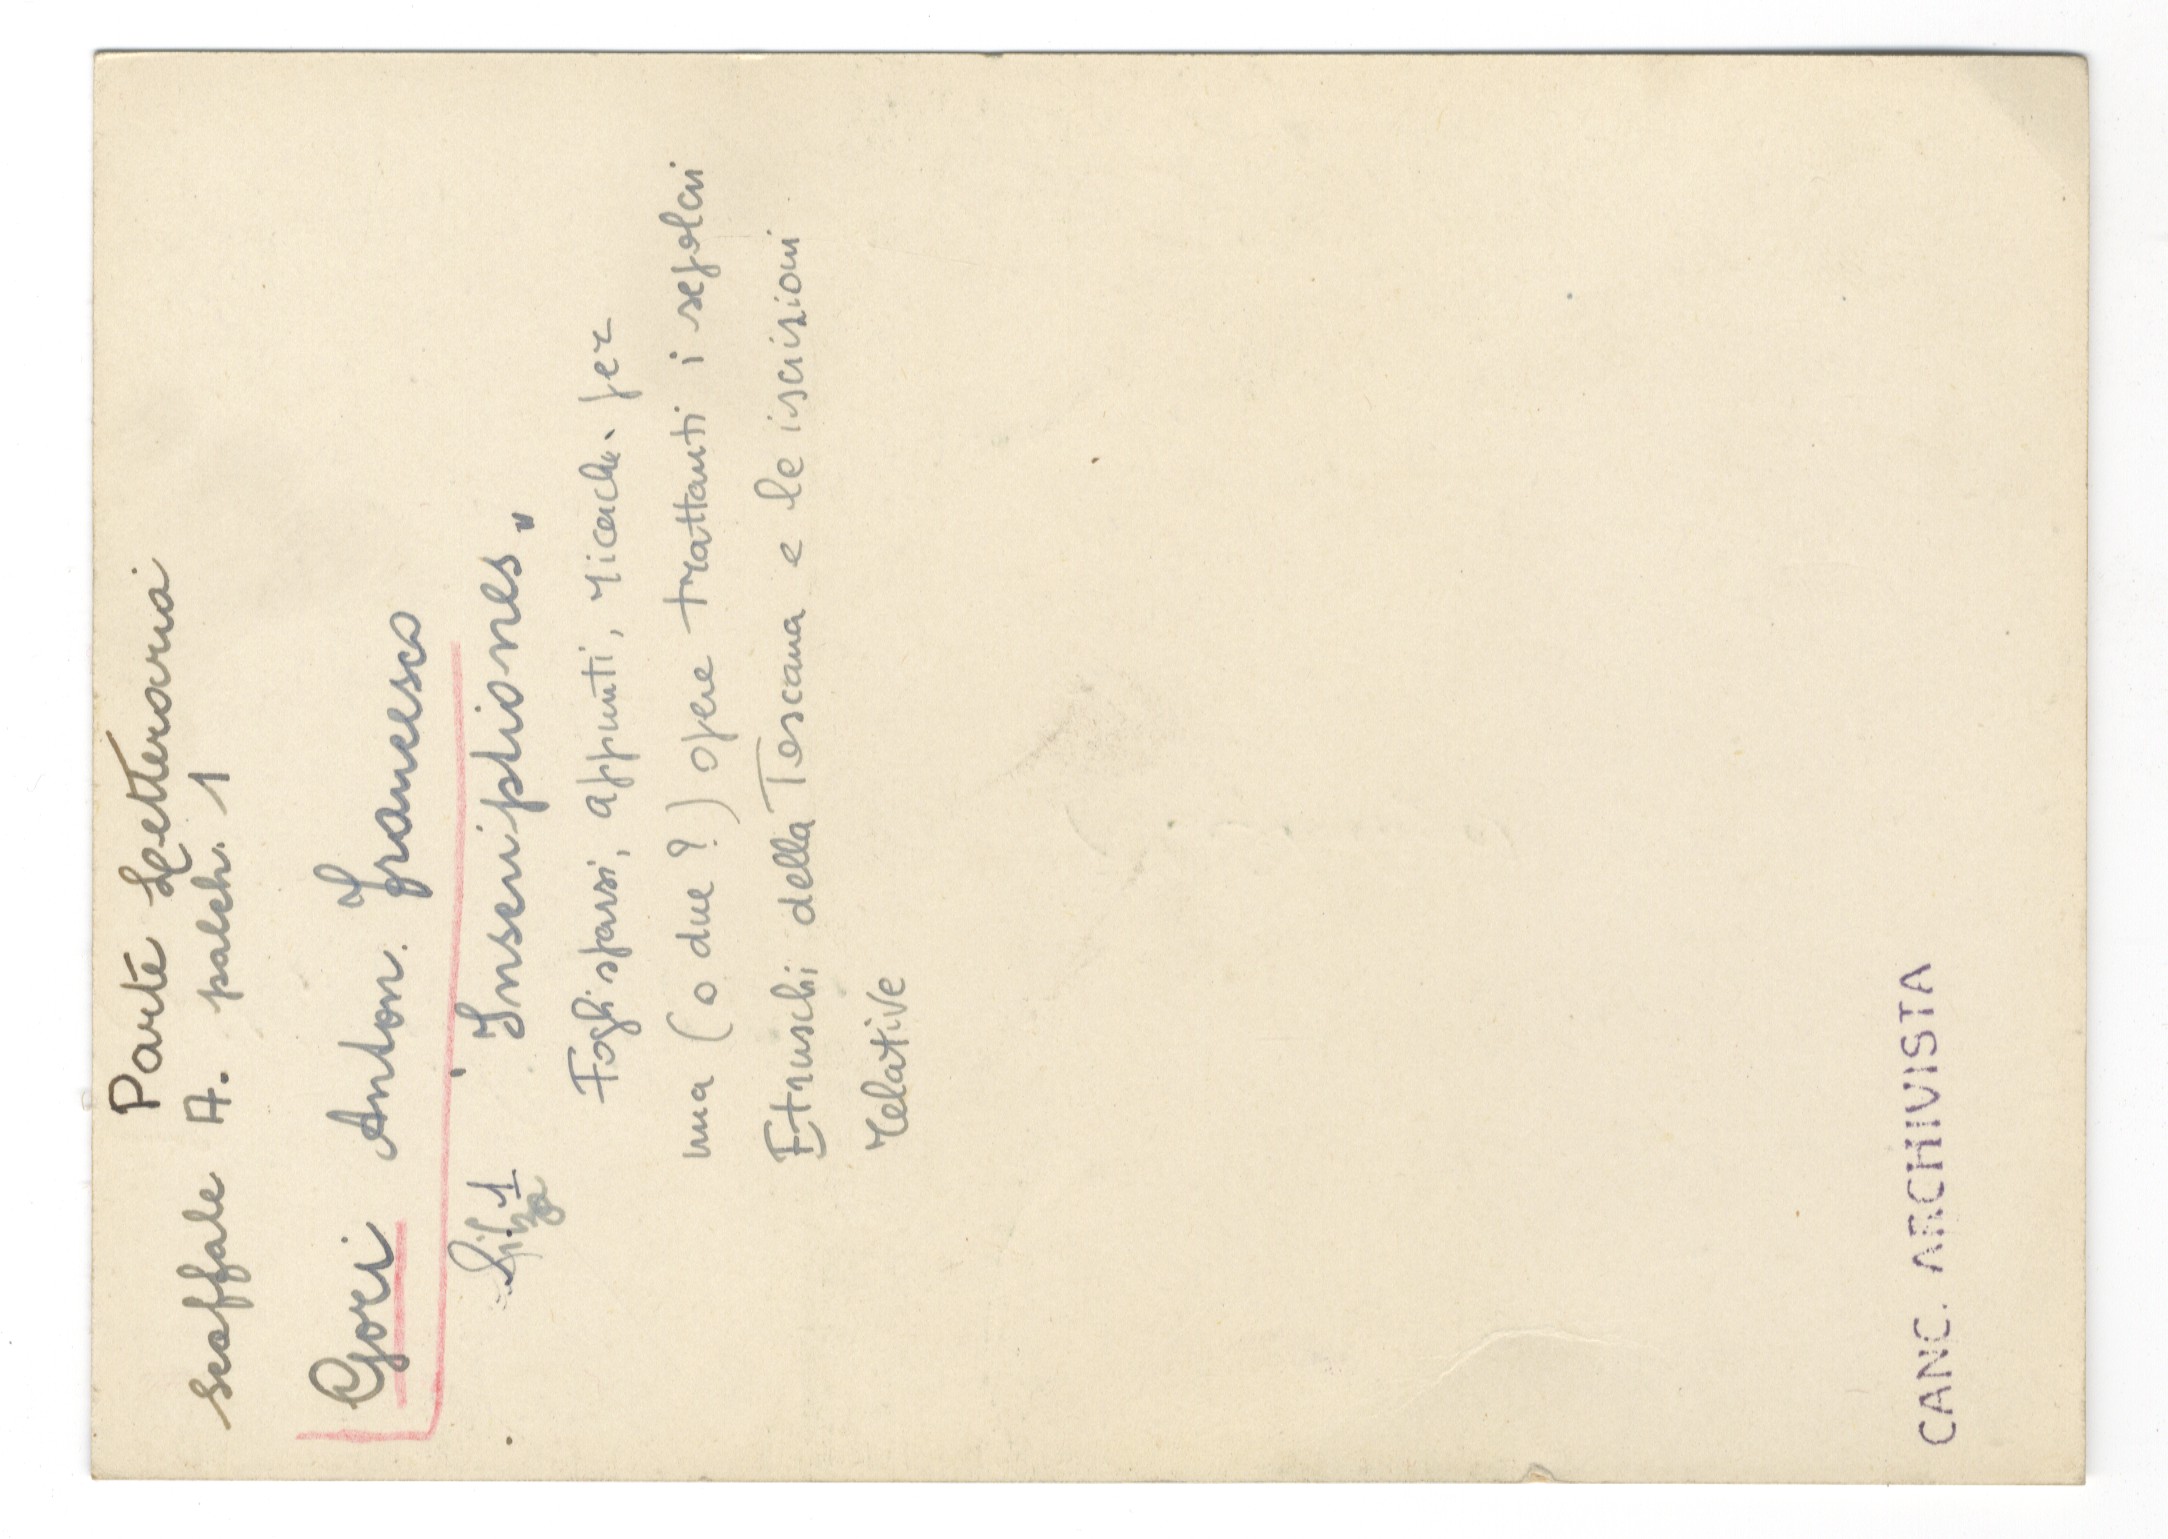 Parte Letteraria
scaffale A. palch. 1
Gori Anton. Francesco
"Inscriptiones"
Fogli sparsi, appunti, ricerche per
una (o due?) opere trattanti i sepolcri
Etruschi della Toscana e le iscrizioni
relative
CANC. ARCHIVISTA